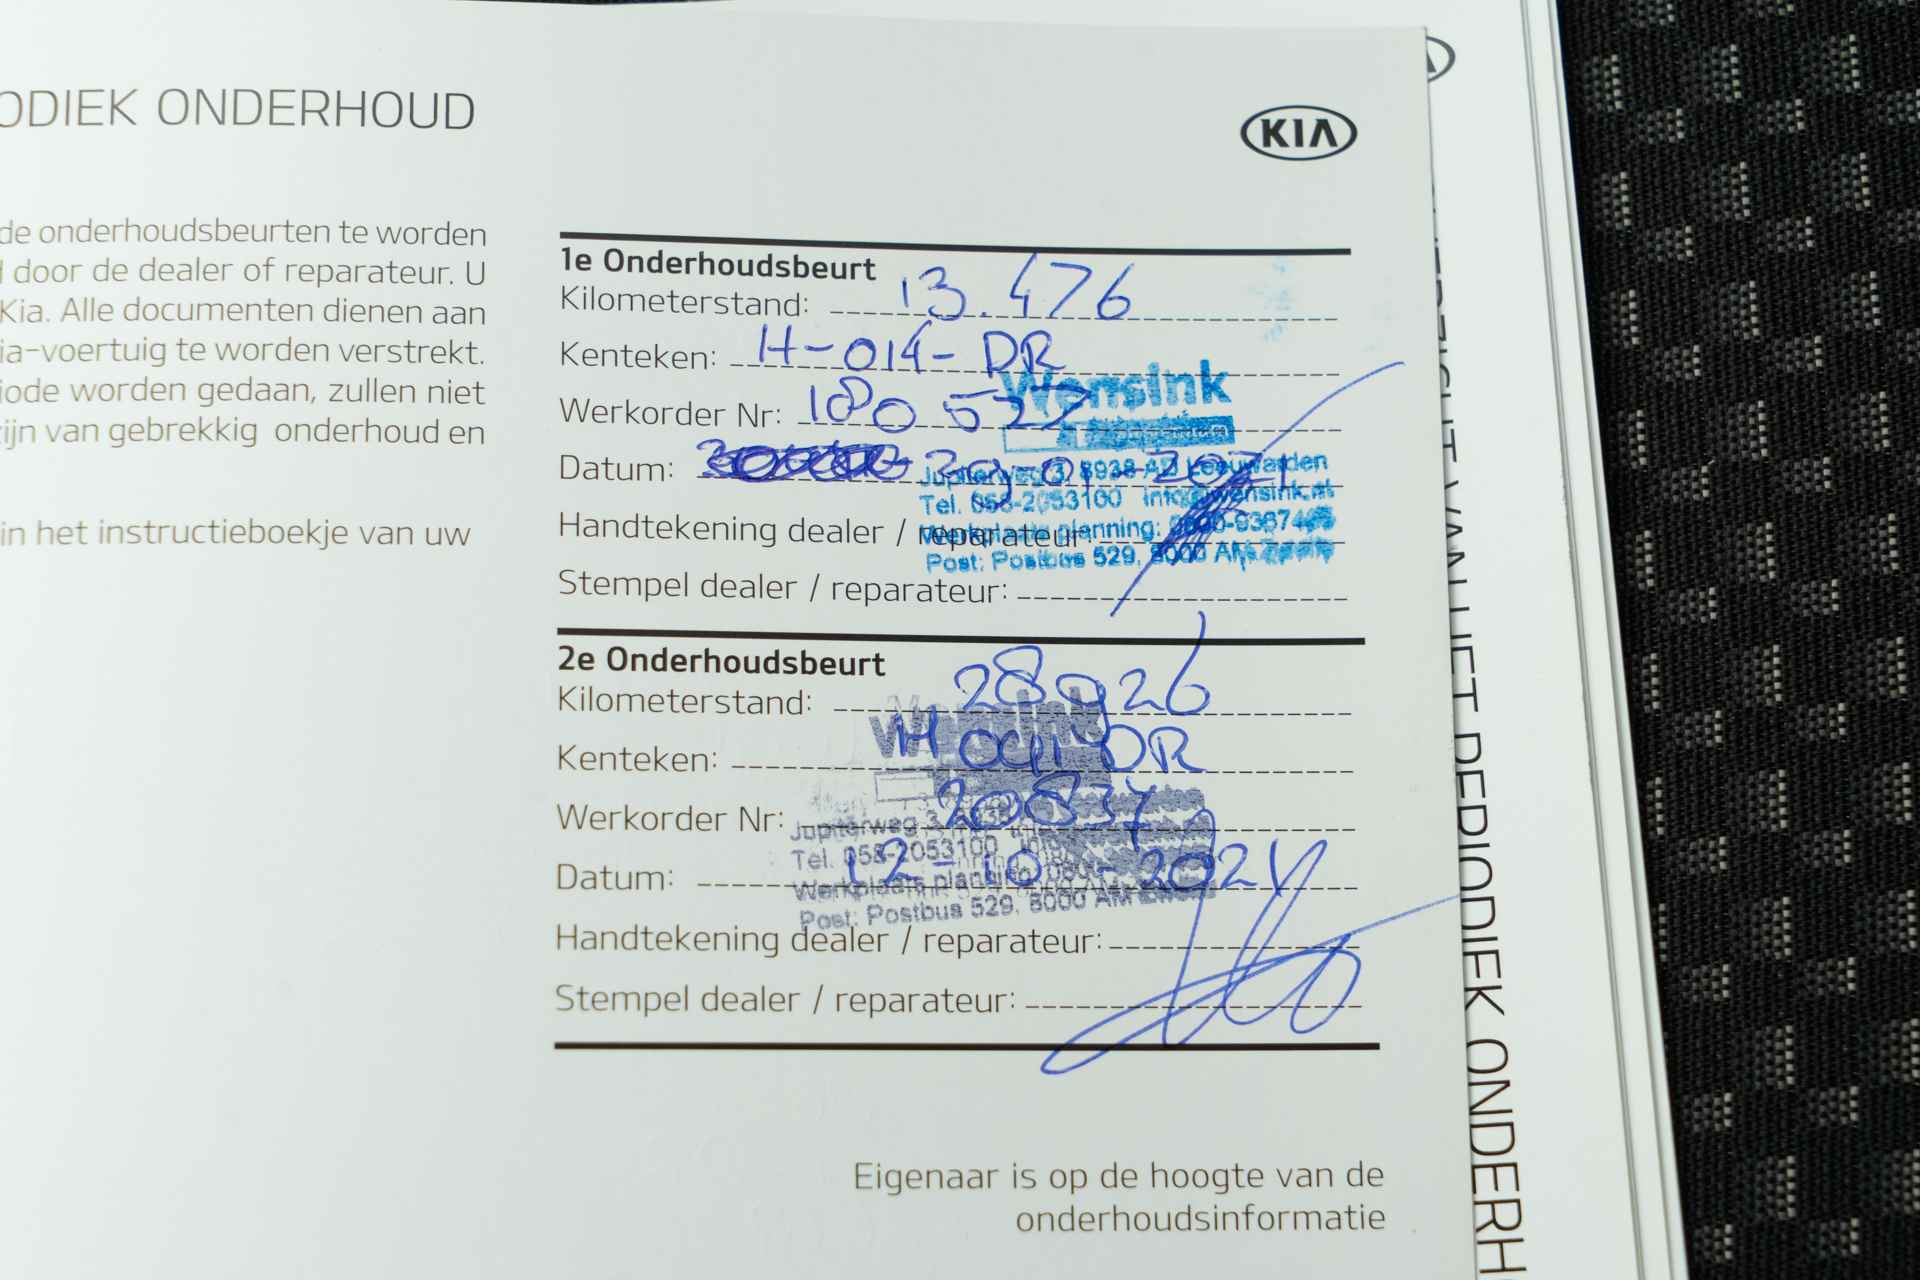 ODIEK ONDERHOUD
KIA
de onderhoudsbeurten te worden
door de dealer of reparateur. U
Kia. Alle documenten dienen aan
ia-voertuig te worden verstrekt.
iode worden gedaan, zullen niet
ijn van gebrekkig onderhoud en
in het instructieboekje van uw
1e Onderhoudsbeurt
Kilometerstand: 13.476
Kenteken: H-014-DR
Werkorder Nr: 180 527
Datum:
Handtekening dealer / reparateur:
Stempel dealer / reparateur:
Wensink
Jupiterweg 3, 8938 AD Leeuwarden
Tel. 058-2053100 info@wensink.nl
Werkplaats planning:
Post: Postbus 529, 8000 AM
2e Onderhoudsbeurt
Kilometerstand: 28926
Kenteken: H 014 DR
Werkorder Nr: 20837
Datum: 12-10-2024
Handtekening dealer / reparateur:
Stempel dealer / reparateur:
Wensink
Jupiterweg 3, 8938
Tel. 058-2053100
Werkplaats planning:
Post: Postbus 529, 8000 AM
Eigenaar is op de hoogte van de
onderhoudsinformatie
VAN HET PERIODIEK ONDERH